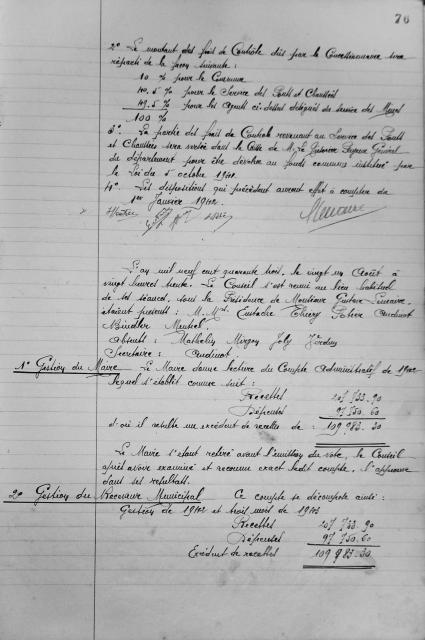 76
2° Le montant des frais de Contrôle dûs par le Concessionnaire sera
réparti de la façon suivante :
10 % pour la Commune
40.5 % pour le Service des Ponts et Chaussées
49.5 % pour les agents ci-dessus désignés du service des
100 %
3° La partie des frais de Contrôle revenant au Service des Ponts
et Chaussées sera versée dans la Caisse de M. Le Trésorier Payeur Général
du département pour être dévolue au fonds commun institué par
la Loi du 5 octobre 1941.
4° Les dispositions qui précèdent auront effet à compter du
1er Janvier 1942.
L'an mil neuf cent quarante trois, le vingt un Août à
vingt heures trente. Le Conseil s'est réuni au lieu habituel
de ses séances, sous la Présidence de Monsieur Gustave
étaient présents : M. Mrs. Eustache Thierry Audinot
Absents : Mathelin Joly
Secrétaire : Audinot
1° Gestion du Maire Le Maire donne lecture du Compte Administratif de 1942
lequel s'établit comme suit :
Recettes 207 733.90
Dépenses 97 750.60
d'où il résulte un excédent de recettes de : 109 983.30
Le Maire s'étant retiré avant l'émission du vote, le Conseil
après avoir examiné et reconnu exact ledit compte, l'approuve
dans ses résultats.
2° Gestion du Receveur Municipal Ce compte se décompte ainsi :
Gestion de 1942 et trois mois de 1943
Recettes 207 733.90
Dépenses 97 750.60
Excédent de recettes 109 983.30